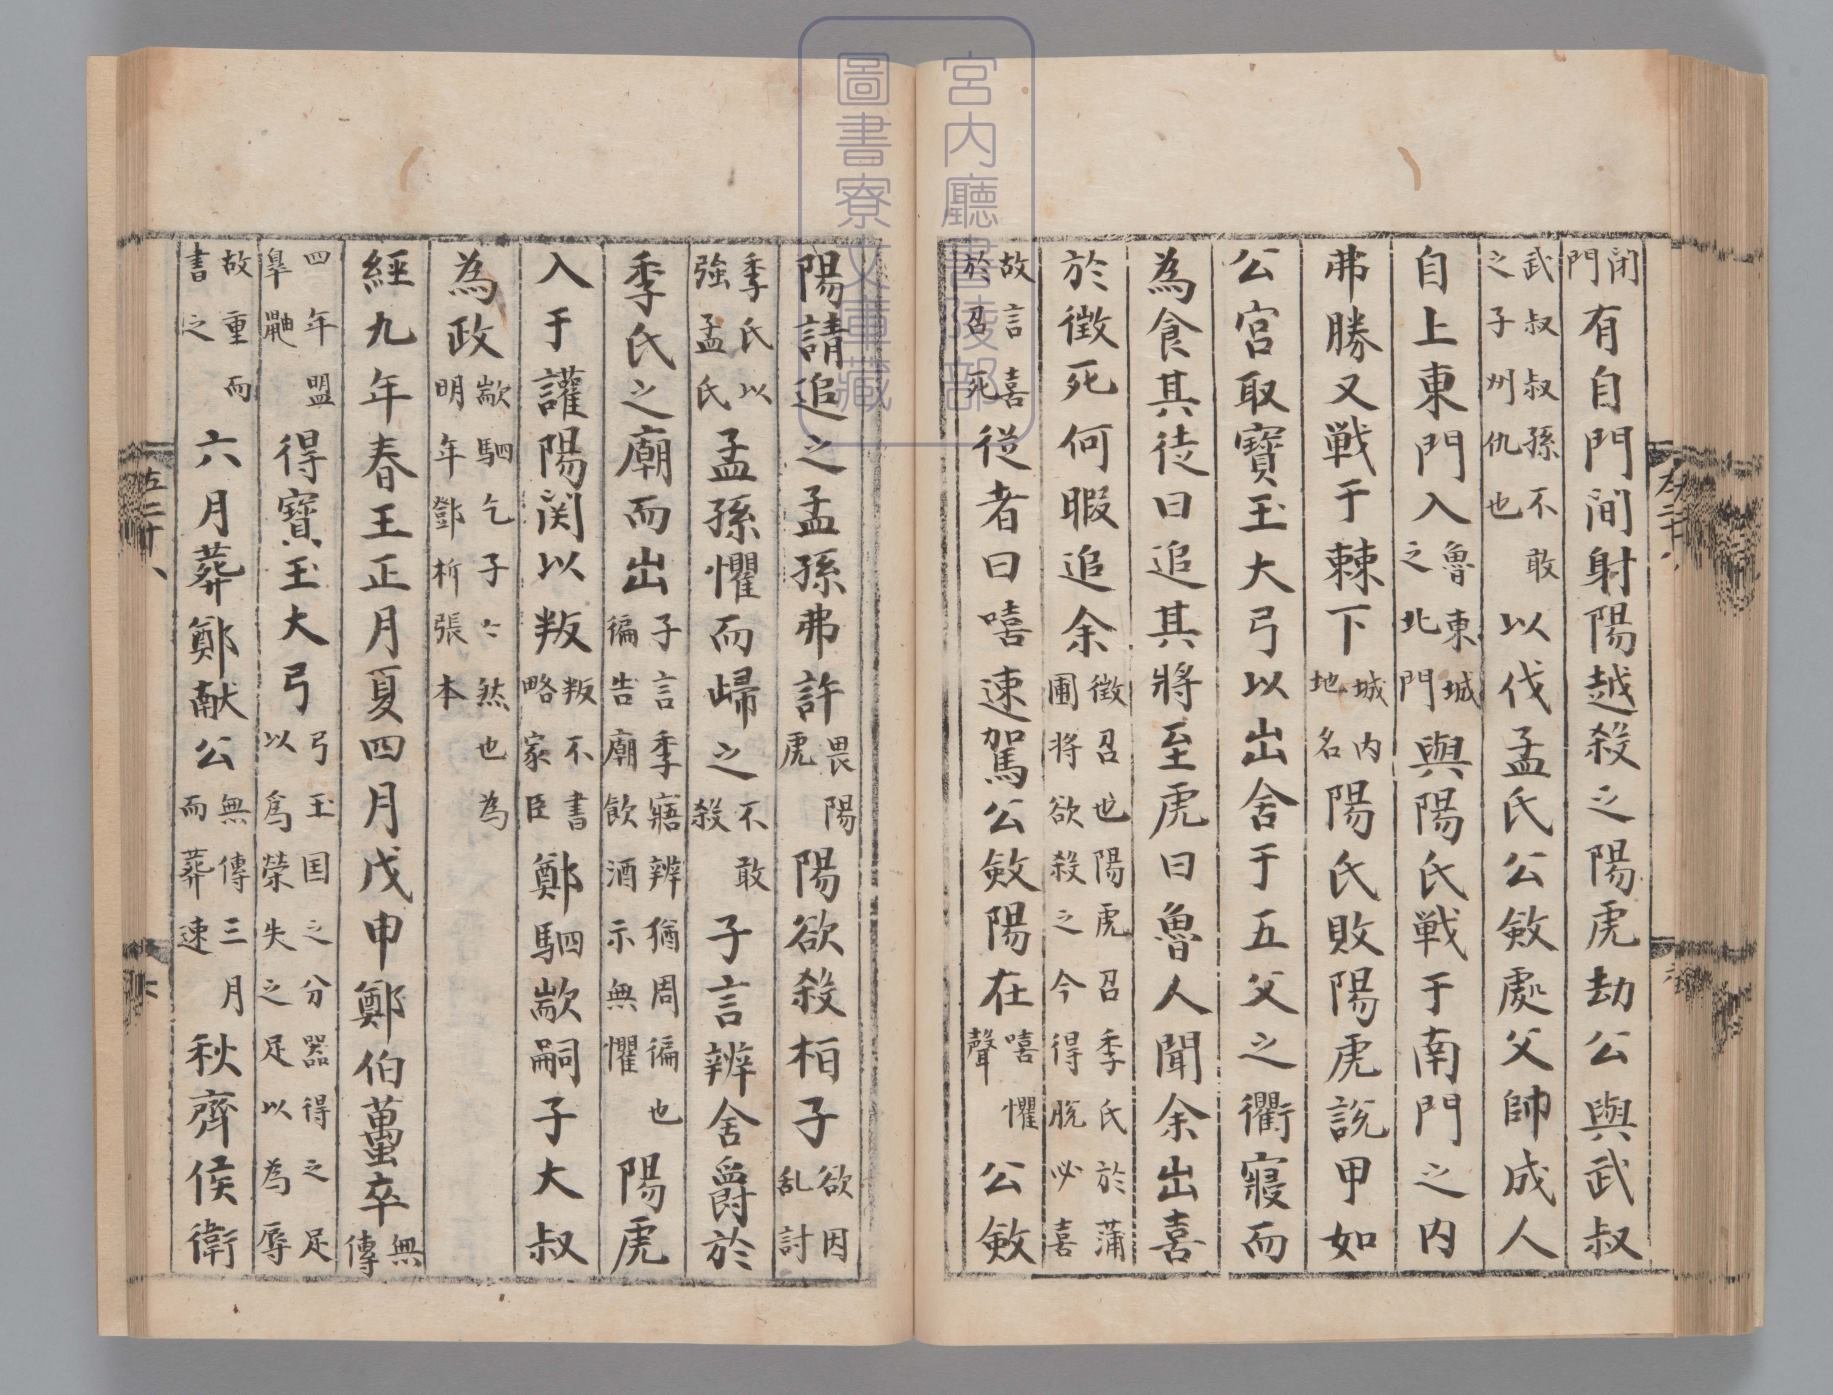 閉門有自門間射陽越殺之陽虎劫公與武叔
武叔叔孫不敢之子州仇也以伐孟氏公斂處父帥成人
自上東門入魯東城之北門與陽氏戦于南門之内
弗勝又戦于棘下城内地名陽氏敗陽虎說甲如
公宮取寶玉大弓以出舍于五父之衢寢而
為食其徒曰追其將至虎曰魯人聞余出喜
於徴死何暇追余徴召也陽虎召季氏於蒲圃将欲殺之今得脱必喜
故言喜於召死従者曰嘻速駕公斂陽在嘻懼聲公斂
陽請追之孟孫弗許畏陽虎陽欲殺桓子欲因乱討
季氏以強孟氏孟孫懼而歸之不敢殺子言辨舍爵於
季氏之廟而出子言季寤辨猶周徧也徧告廟飲酒示無懼陽虎
入于讙陽関以叛叛不書略家臣鄭駟歂嗣子大叔
為政歂駟乞子〻然也為明年鄧析張本
經九年春王正月夏四月戊申鄭伯蠆卒無傳
四年盟皐鼬得寶玉大弓弓玉国之分器得之足以爲榮失之足以為辱
故重而書之六月葬鄭献公無傳三月而葬速秋齊侯衛
左二十八
六
宮内廳書陵部
圖書寮文庫藏